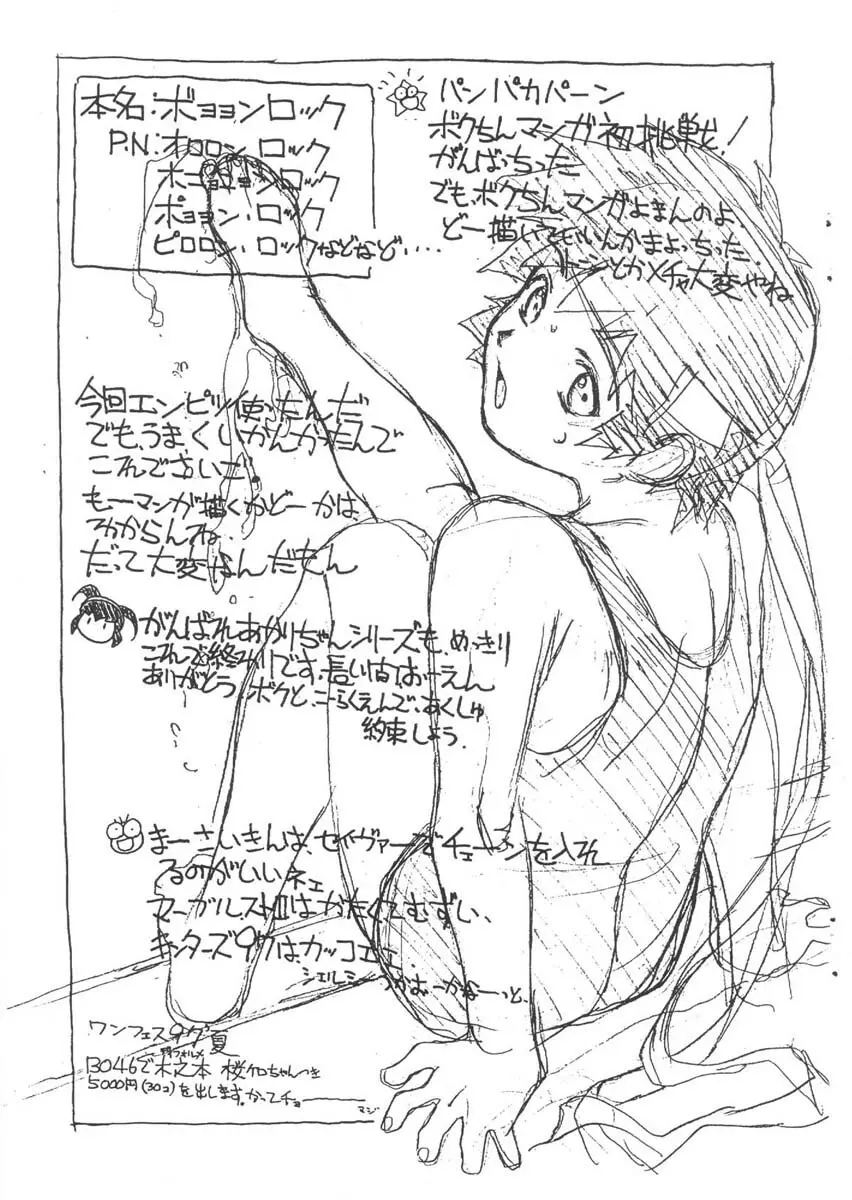 本名:ボョョンロック
P.N:オロロン ロック
ボニョョョン ロック
ポョョン.ロック
ピロロン.ロックなどなど....
パンパカパーン
ボクちんマンガ初挑戦!
がんばっちった
でも、ボクちんマンガよまんのよ
どー描いていいんかまよっちった.
とかメチャ大変やね
今回エンピツ使ったんだ
でも、うまくいかんかったんで
これでさいご.
もーマンガ描くかどーかは、
わからんね..
だって大変なんだもん
がんばれあかりちゃんシリーズも、めっきり
これで終わりです.長い間おーえん
ありがとう.ボクと、こーらくえんで、あくしゅ
約束しよう.
まーさいきんは、セイヴァーでチェーンを入れ
るのがいいネェ
マーヴルストⅡはかたくてむずい、
キングターズ97は、カッコエー
シェルミーつかおーかなーっと、
ワンフェス97夏
B046で木之本 桜ケロちゃんつき
5000円(30コ)を出します.かってチョ――
マジ